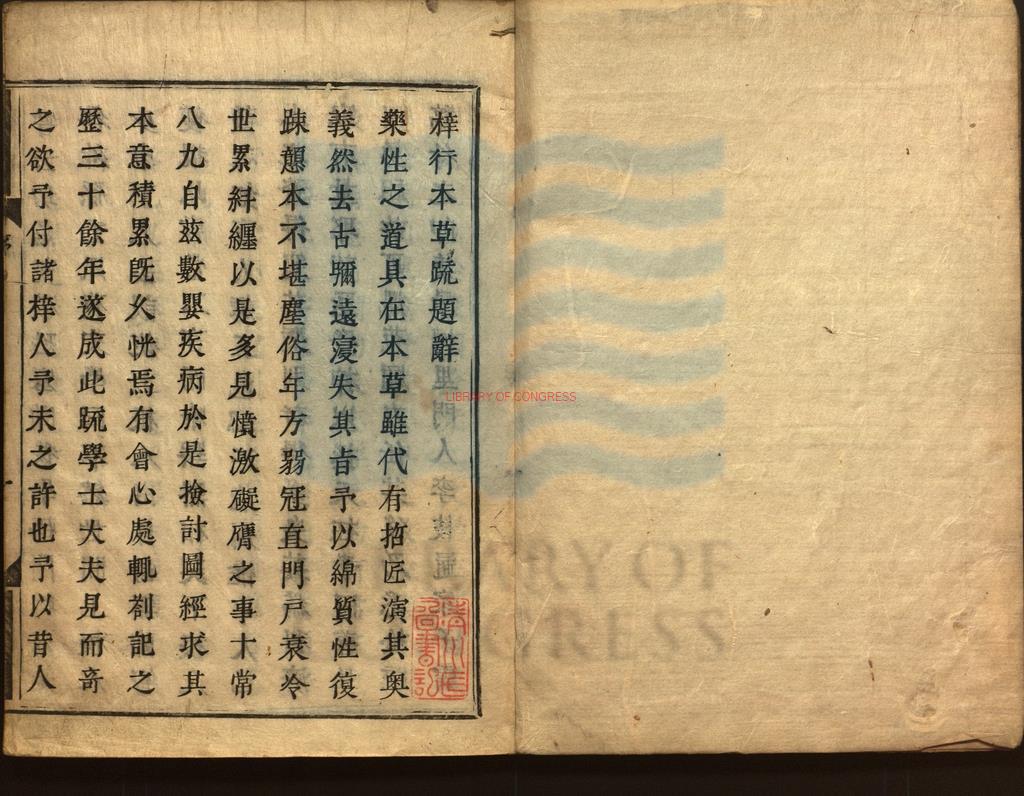 梓行本草疏題辭
藥性之道具在本草雖代有哲匠演其奧
義然去古彌遠寖失其旨予以綿質性復
踈戇本不堪塵俗年方弱冠直門戶衰冷
世累糾纏以是多見憤激礙膺之事十常
八九自茲數嬰疾病於是撿討圖經求其
本意積累旣久恍焉有會心處輙劄記之
歷三十餘年遂成此疏學士大夫見而竒
之欲予付諸梓人予未之許也予以昔人
LIBRARY OF CONGRESS